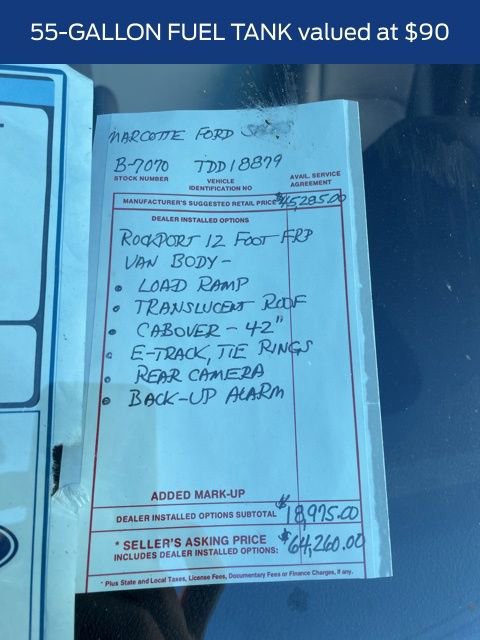 55-GALLON FUEL TANK valued at $90
MARCOTTE FORD
B-7070 TDD18879
STOCK NUMBER VEHICLE IDENTIFICATION NO AVAIL. SERVICE AGREEMENT
MANUFACTURER'S SUGGESTED RETAIL PRICE $45,285.00
DEALER INSTALLED OPTIONS
ROCKPORT 12 FOOT FRP
VAN BODY-
• LOAD RAMP
• TRANSLUCENT ROOF
• CABOVER - 42"
• E-TRACK, TIE RINGS
• REAR CAMERA
• BACK-UP ALARM
ADDED MARK-UP
DEALER INSTALLED OPTIONS SUBTOTAL $18,975.00
* SELLER'S ASKING PRICE $64,260.00
INCLUDES DEALER INSTALLED OPTIONS:
* Plus State and Local Taxes, License Fees, Documentary Fees or Finance Charges, if any.